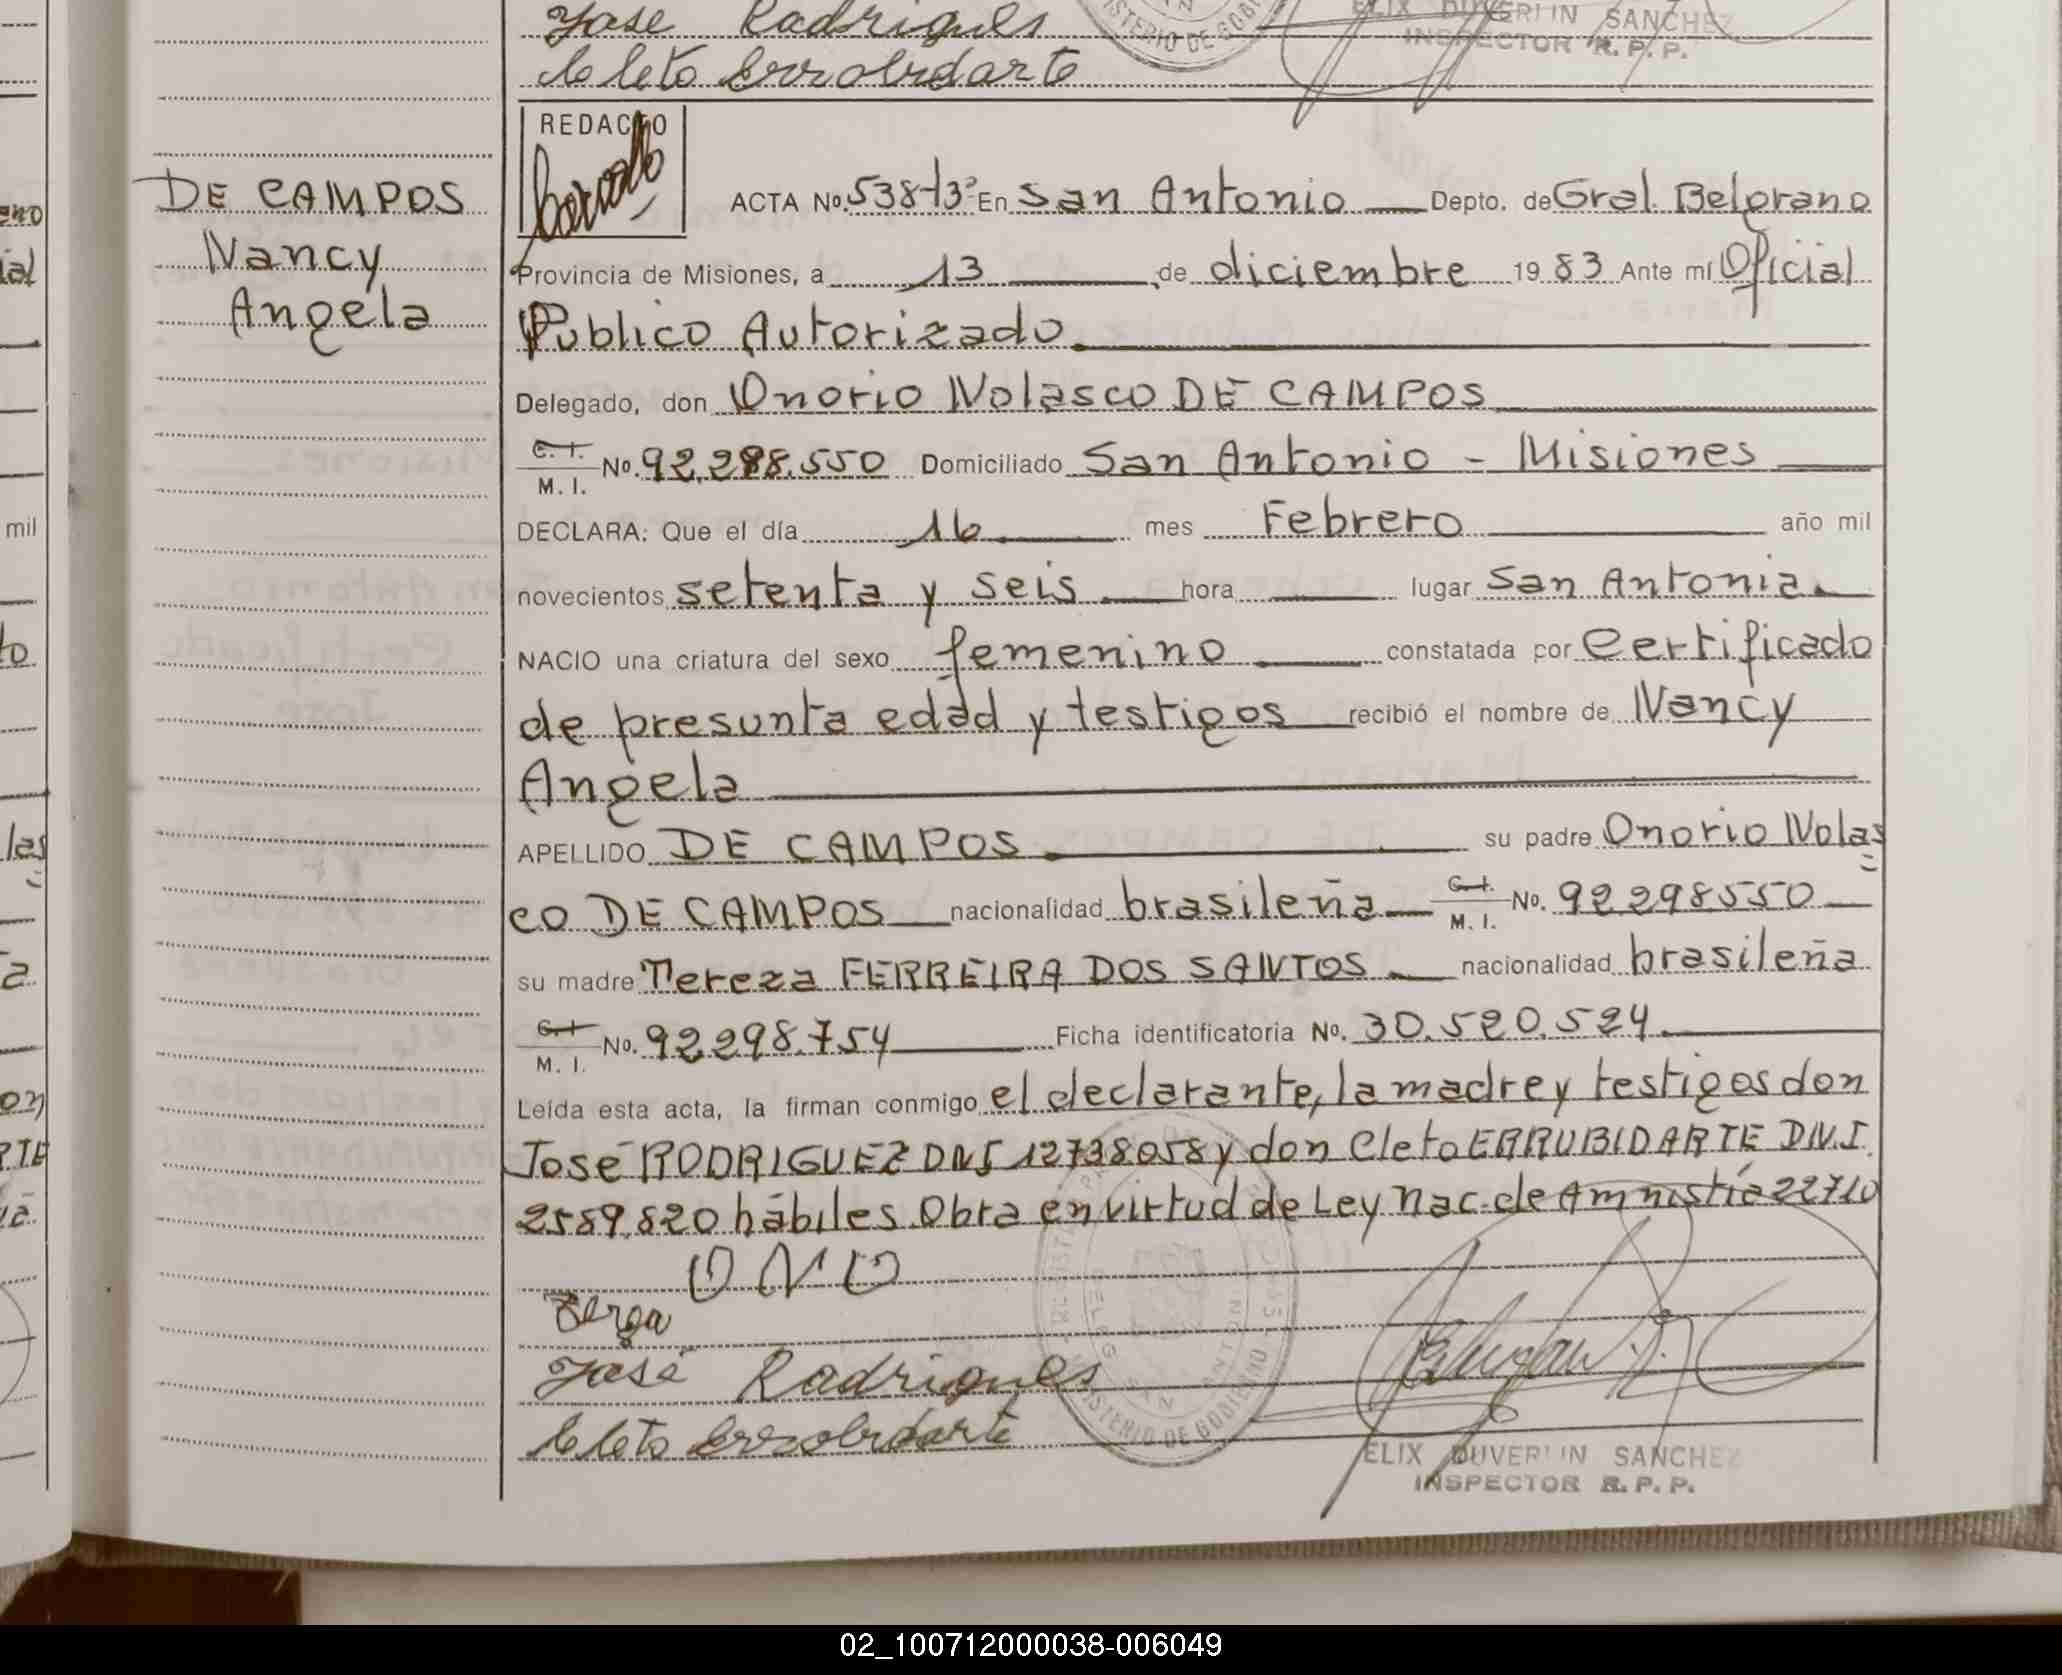 José Rodrigues
Cleto Errobidarte
ELIX DUVERLIN SANCHEZ
INSPECTOR R. P. P.
DE CAMPOS
Nancy
Angela
REDACTO
ACTA No. 538-T3º En San Antonio Depto. de Gral. Belgrano
Provincia de Misiones, a 13 de diciembre 19 83 Ante mí Oficial
Publico Autorizado
Delegado, don Onorio Nolasco DE CAMPOS
C. I.
M. I. No. 92.298.550 Domiciliado San Antonio - Misiones
DECLARA: Que el día 16 mes Febrero año mil
novecientos setenta y seis hora lugar San Antonio
NACIO una criatura del sexo femenino constatada por Certificado
de presunta edad y testigos recibió el nombre de Nancy
Angela
APELLIDO DE CAMPOS su padre Onorio Nolas
co DE CAMPOS nacionalidad brasileña C. I. M. I. No. 92298550
su madre Tereza FERREIRA DOS SANTOS nacionalidad brasileña
C. I.
M. I. No. 92.298.754 Ficha identificatoria No. 30.520.524
Leída esta acta, la firman conmigo el declarante, la madre y testigos don
José RODRIGUEZ DNI 12738058 y don Cleto ERRUBIDARTE D.N.I.
2589.820 hábiles. Obra en virtud de Ley Nac. de Amnistía 22710
ONO
José Rodrigues
Cleto Errobidarte
MINISTERIO DE GOBIERNO
ELIX DUVERLIN SANCHEZ
INSPECTOR R. P. P.
02_100712000038-006049